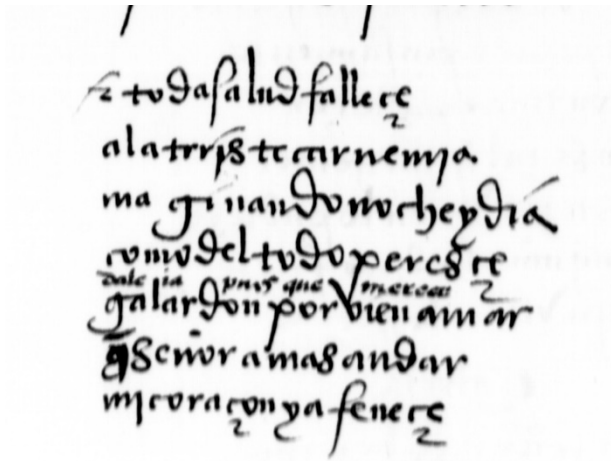 toda salud falleçe
ala triste carne mja
maginando noche y día
como del todo peresçe
dale ia pues que mereçe
galardon por bien amar
q senor amas andar
mj coraçon ya feneçe